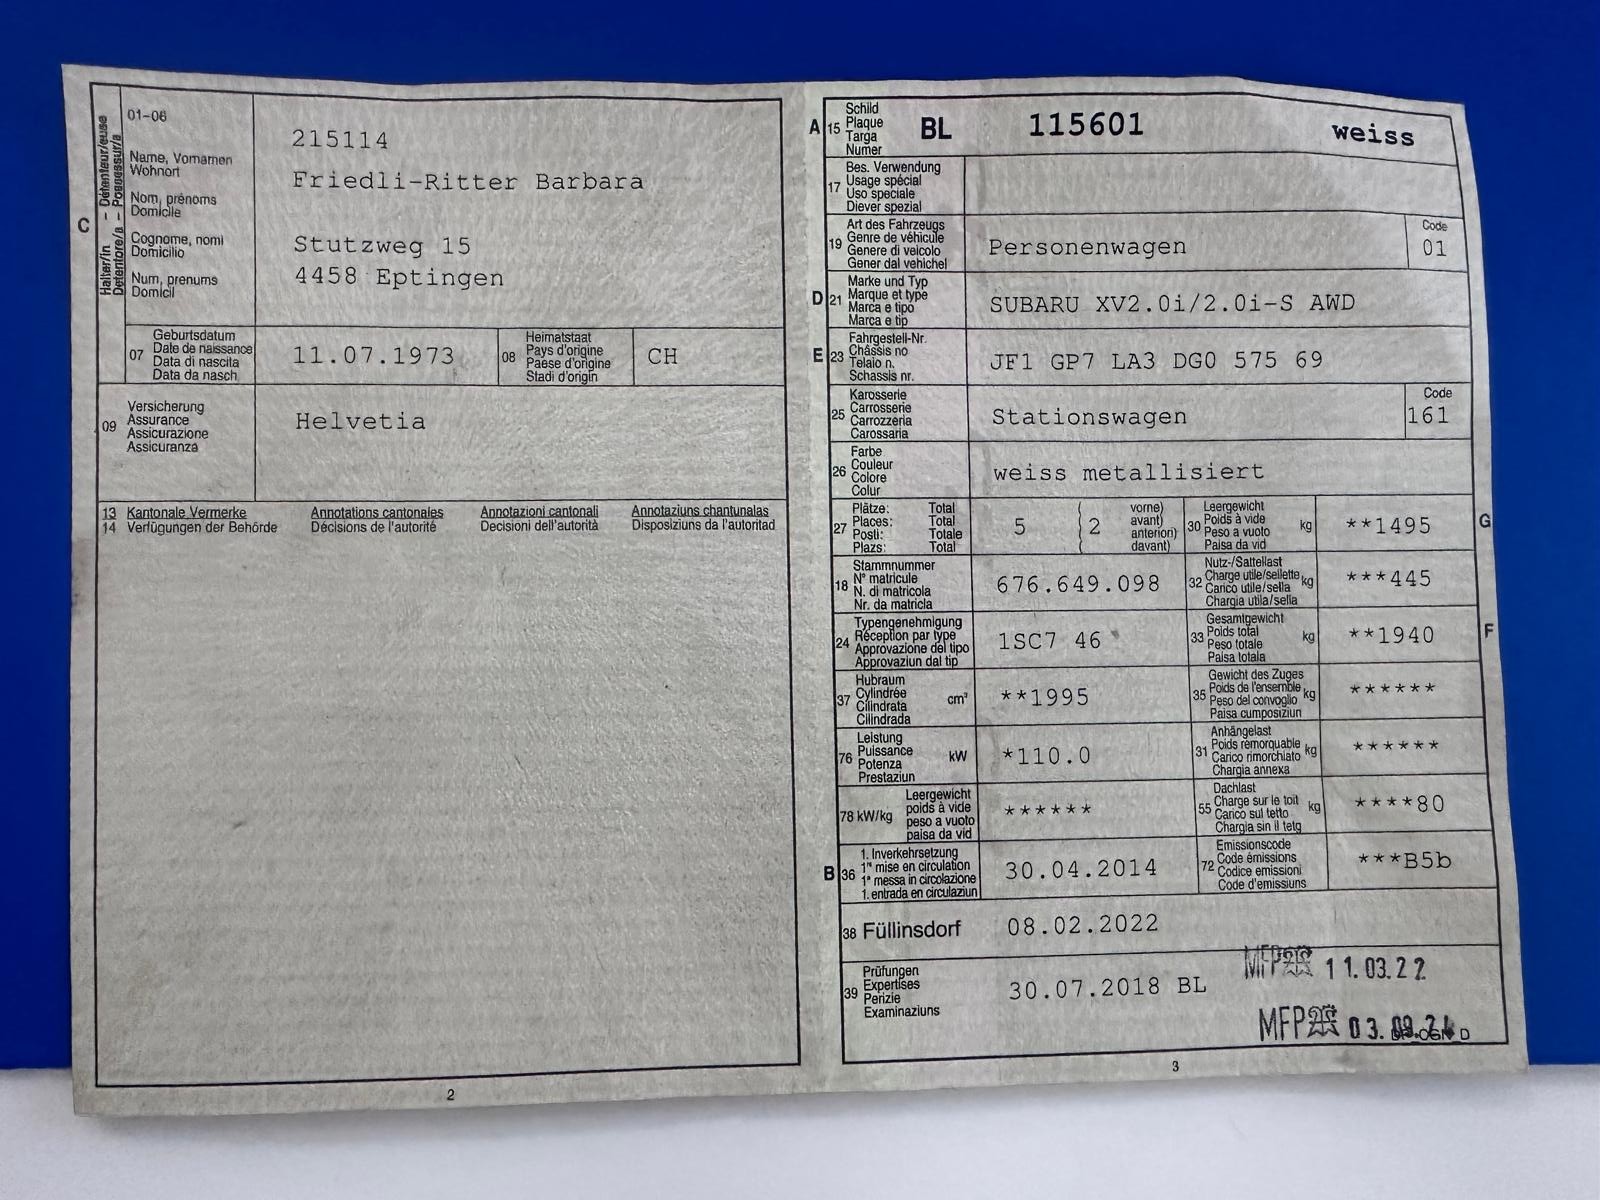 C
Halter/in – Détenteur/euse
Detentore/a – Possessur/a
01-06
Name, Vornamen
Wohnort
Nom, prénoms
Domicile
Cognome, nomi
Domicilio
Num, prenums
Domicil
215114
Friedli-Ritter Barbara
Stutzweg 15
4458 Eptingen
07
Geburtsdatum
Date de naissance
Data di nascita
Data da nasch.
11.07.1973
08
Heimatstaat
Pays d'origine
Paese d'origine
Stadi d'origin
CH
09
Versicherung
Assurance
Assicurazione
Assicuranza
Helvetia
13 Kantonale Vermerke Annotations cantonales Annotazioni cantonali Annotaziuns chantunalas
14 Verfügungen der Behörde Décisions de l'autorité Decisioni dell'autorità Disposiziuns da l'autoritad
2
A 15
Schild
Plaque
Targa
Numer
BL 115601 weiss
17
Bes. Verwendung
Usage spécial
Uso speciale
Diever spezial
19
Art des Fahrzeugs
Genre de véhicule
Genere di veicolo
Gener dal vehichel
Personenwagen
Code
01
D 21
Marke und Typ
Marque et type
Marca e tipo
Marca e tip
SUBARU XV2.0i/2.0i-S AWD
E 23
Fahrgestell-Nr.
Châssis no
Telaio n.
Schassis nr.
JF1 GP7 LA3 DG0 575 69
25
Karosserie
Carrosserie
Carrozzeria
Carossaria
Stationswagen
Code
161
26
Farbe
Couleur
Colore
Colur
weiss metallisiert
27
Plätze: Total
Places: Total
Posti: Totale
Plazs: Total
5 ( 2
vorne)
avant)
anteriori)
davant)
30
Leergewicht
Poids à vide
Peso a vuoto
Paisa da vid
kg
**1495
G
18
Stammnummer
N° matricule
N. di matricola
Nr. da matricla
676.649.098
32
Nutz-/Sattellast
Charge utile/sellette
Carico utile/sella
Chargia utila/sella
kg
***445
24
Typengenehmigung
Réception par type
Approvazione del tipo
Approvaziun dal tip
1SC7 46
33
Gesamtgewicht
Poids total
Peso totale
Paisa totala
kg
**1940
F
37
Hubraum
Cylindrée
Cilindrata
Cilindrada
cm³
**1995
35
Gewicht des Zuges
Poids de l'ensemble
Peso del convoglio
Paisa cumposiziun
kg
******
76
Leistung
Puissance
Potenza
Prestaziun
kW
*110.0
31
Anhängelast
Poids remorquable
Carico rimorchiato
Chargia annexa
kg
******
78 kW/kg
Leergewicht
poids à vide
peso a vuoto
paisa da vid
******
55
Dachlast
Charge sur le toit
Carico sul tetto
Chargia sin il tetg
kg
****80
B 36
1. Inverkehrsetzung
1re mise en circulation
1a messa in circolazione
1. entrada en circulaziun
30.04.2014
72
Emissionscode
Code émissions
Codice emissioni
Code d'emissiuns
***B5b
38 Füllinsdorf 08.02.2022
39
Prüfungen
Expertises
Perizie
Examinaziuns
30.07.2018 BL
MFP 11.03.22
MFP 03.
3